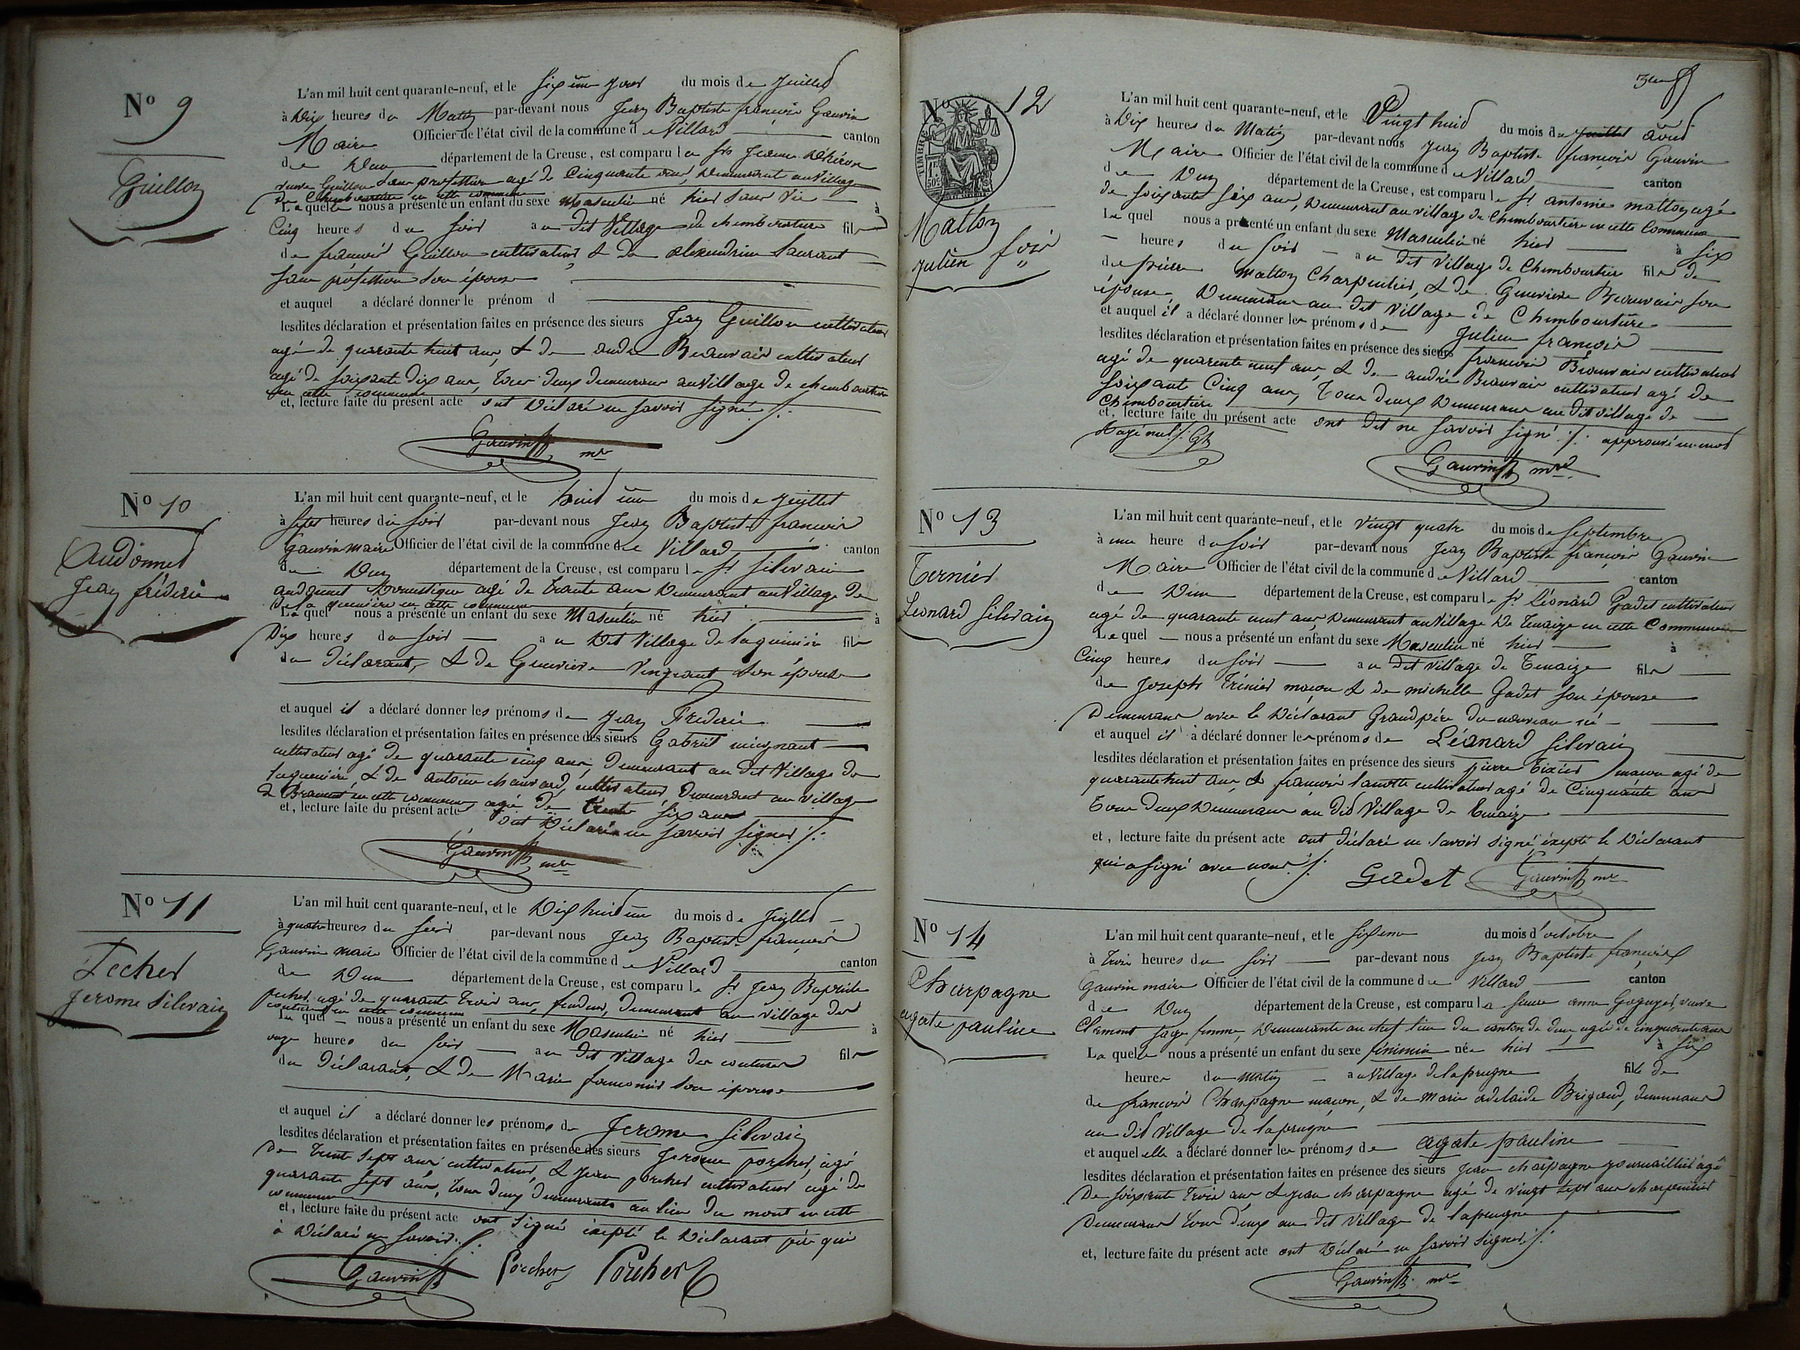 No 9
Guillon
L'an mil huit cent quarante-neuf, et le sixième jour du mois de juillet
à Dix heures du Matin par-devant nous Jean Baptiste françois Gauvin
Maire Officier de l'état civil de la commune de Villard canton
de Dun département de la Creuse, est comparu la
veuve Guillon sans profession agé de Cinquante ans, Demeurant au Village
de Chembourtière en cette commune
Laquelle nous a présenté un enfant du sexe masculin né hier sans vie à
Cinq heures du soir au dit Village de chembourtière fils
de françois Guillon cultivateur & de alexandrine Laurant
sans profession son épouse
et auquel a déclaré donner le prénom d
lesdites déclaration et présentation faites en présence des sieurs Jean Guillon cultivateur
agé de quarante huit ans, & de andré Beauvais cultivateur
agé de soixante dix ans, tous deux demeurans au Village de chembourtière
en cette commune
et, lecture faite du présent acte ont Déclaré ne savoir signé ./.
Gauvin mre
No 10
Audonnet
Jean fréderic
L'an mil huit cent quarante-neuf, et le huitième du mois de Juillet
à sept heures du soir par-devant nous Jean Baptiste françois
Gauvin maire Officier de l'état civil de la commune de Villard canton
de Dun département de la Creuse, est comparu le Sr Silvain
audonnet Domestique agé de trente ans Demeurant au Village De
en cette commune
Le quel nous a présenté un enfant du sexe Masculin né hier à
Dix heures du soir au Dit Village de fils
du Déclarant, & de Genevieve son épouse
et auquel il a déclaré donner les prénoms de Jean Frederic
lesdites déclaration et présentation faites en présence des sieurs Gabriel
cultivateur agé de quarante cinq ans, Demeurant au dit Village de
& de antoine cultivateur Demeurant au village
en cette commune agé de trente six ans
et, lecture faite du présent acte ont Déclaré ne savoir signer ./.
Gauvin mre
No 11
Pecher
Jerome Silvain
L'an mil huit cent quarante-neuf, et le Dix huitième du mois de Juillet
à quatre heures du soir par-devant nous Jean Baptiste françois
Gauvin maire Officier de l'état civil de la commune de Villard canton
de Dun département de la Creuse, est comparu le Sr Jean Baptiste
agé de quarante trois ans, Demeurant au village des
en cette commune
Le quel nous a présenté un enfant du sexe Masculin né hier à
onze heures du soir au Dit Village des fils
du Déclarant, & de Marie son épouse
et auquel il a déclaré donner les prénoms de Jerome Silvain
lesdites déclaration et présentation faites en présence des sieurs Jerome porcher, agé
De trente sept ans cultivateur, & Jean porcher cultivateur agé de
quarante sept ans, tous deux demeurants au lieu du mont en cette
commune
et, lecture faite du présent acte ont signé exepté le Déclarant père qui
a Déclaré ne savoir ./.
Gauvin Porcher Porcher
No 12
TIMBRE
Matton
Julien
L'an mil huit cent quarante-neuf, et le Vingt huit du mois de juillet août
à Dix heures du Matin par-devant nous Jean Baptiste françois Gauvin
Maire Officier de l'état civil de la commune de Villard canton
de Dun département de la Creuse, est comparu le Sr antoine matton agé
de soixante six ans, Demeurant au village de Chembourtière en cette Commune
Le quel nous a présenté un enfant du sexe Masculin né hier à six
heures du soir au dit Village de Chembourtière fils de
de pierre Matton Charpentier, & de Genevieve Beauvais son
épouse Demeurans au dit Village de Chembourtière
et auquel il a déclaré donner les prénoms de Julien françois
lesdites déclaration et présentation faites en présence des sieurs françois Beauvais cultivateur
agé de quarente neuf ans, & de andré Beauvais cultivateur agé de
soixante Cinq ans, Tous deux Demeurans au dit village de
Chembourtière
et, lecture faite du présent acte ont dit ne savoir signé ./. approuvé un mot
Rayé nul ./.
Gauvin mre
No 13
Ternier
Léonard Silvain
L'an mil huit cent quarante-neuf, et le Vingt quatre du mois de Septembre
à une heure du soir par-devant nous Jean Baptiste françois Gauvin
Maire Officier de l'état civil de la commune de Villard canton
de Dun département de la Creuse, est comparu le Sr Léonard Gadet cultivateur
agé de quarante neuf ans Demeurant au Village De Tenaize en cette Commune
Le quel nous a présenté un enfant du sexe Masculin né hier à
Cinq heures du soir au dit Village de Tenaize fils
de Joseph maçon & de michelle Gadet son épouse
Demeurans avec le Déclarant Grand père du nouveau né
et auquel il a déclaré donner les prénoms de Léonard Silvain
lesdites déclaration et présentation faites en présence des sieurs pierre maçon agé de
quarante huit ans, & françois cultivateur agé de Cinquante ans
Tous deux Demeurans au dit Village de Tenaize
et, lecture faite du présent acte ont déclaré ne savoir signé exepté le Déclarant
qui a signé avec nous ./.
Gadet Gauvin mre
No 14
Charpagne
agate pauline
L'an mil huit cent quarante-neuf, et le sixième du mois d'octobre
à trois heures du soir par-devant nous Jean Baptiste françois
Gauvin maire Officier de l'état civil de la commune de Villard canton
de Dun département de la Creuse, est comparu la anne veuve
Clement sage femme, Demeurante au chef lieu du canton de Dun, agée de cinquante ans
La quelle nous a présenté un enfant du sexe féminin née hier à six
heures du matin au Village de laprugne fils de
de françois Charpagne maçon, & de Marie adelaïde Brigaud, Demeurans
au dit Village de laprugne
et auquel elle a déclaré donner les prénoms de agate pauline
lesdites déclaration et présentation faites en présence des sieurs Jean charpagne journaillier agé
De soixante trois ans & Jean charpagne agé de vingt sept ans charpentier
Demeurans tous deux au dit village de laprugne
et, lecture faite du présent acte ont Déclaré ne savoir signer ./.
Gauvin mre